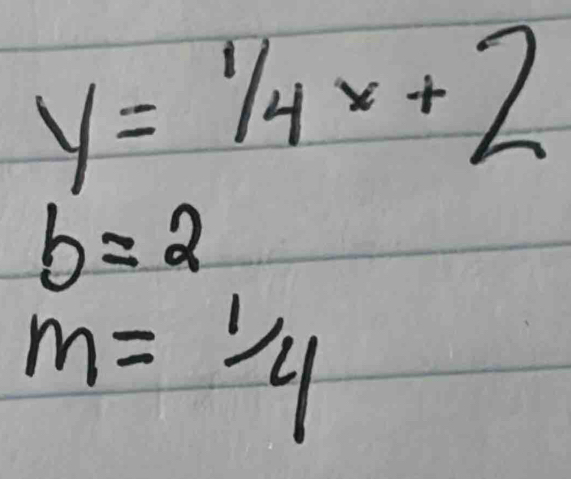 y = 1/4 x + 2
b = 2
m = 1/4